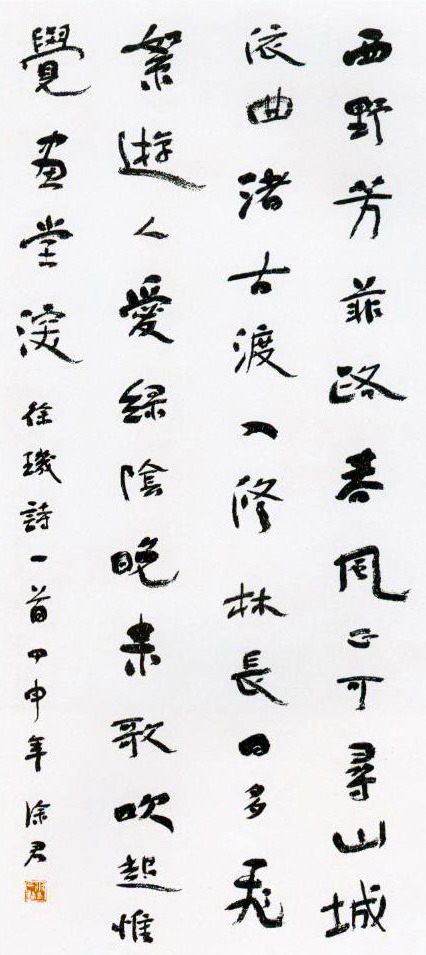 西野芳菲路春風正可尋山城
依曲渚古渡入修林長日多飛
絮遊人愛綠陰晚來歌吹起惟
覺畫堂深徐璣詩一首申年